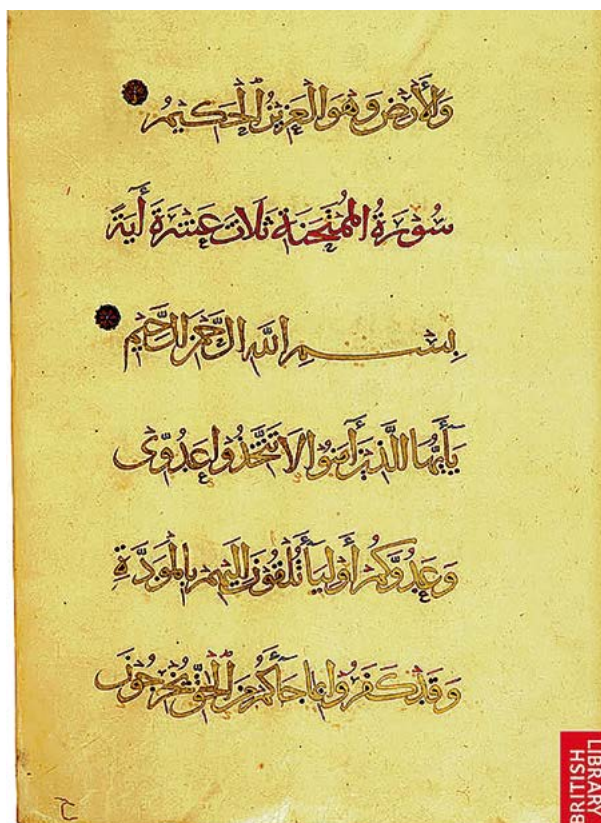 والأرض وهو العزيز الحكيم
سُورَةُ المُمْتَحَنَة ثَلَاث عَشَرَة أَيَة
بِسْمِ اللَّهِ الرَّحْمَنِ الرَّحِيمِ
يَأَيُّهَا الَّذِينَ أَمَنُوا لَا تَتَّخِذُوا عَدُوِّى
وَعَدُوَّكُمْ أَوْلِيَاءَ تُلْقُونَ إِلَيْهِمْ بِالْمَوَدَّةِ
وَقَدْ كَفَرُوا بِمَا جَاءَكُمْ مِنَ الْحَقِّ يُخْرِجُونَ
BRITISH LIBRARY